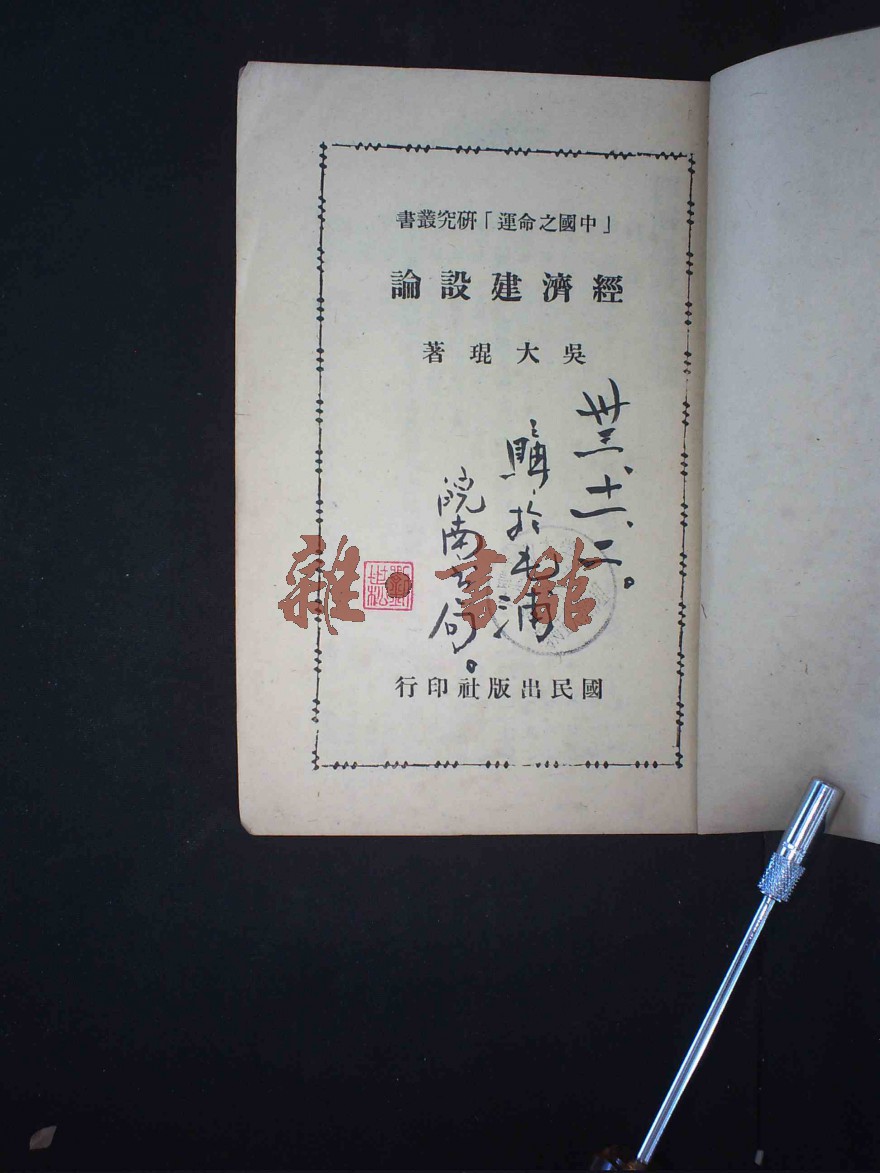 「中國之命運」研究叢書
經濟建設論
吳大琨著
卅三、十一、二。
購於毛浦
皖南
雜書館
國民出版社印行